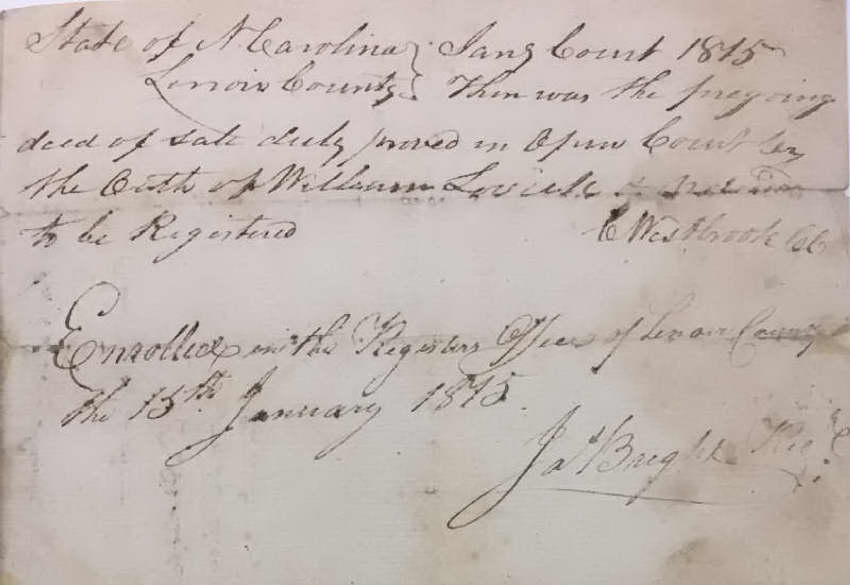 State of N Carolina } Jany Court 1815
Lenoir County } Then was the foregoing
deed of sale duly proved in Open Court by
the Oath of William Lovick &
to be Registered C Westbrook
Enrolled in the Registers Office of Lenoir County
the 15th January 1815.
Jas Bright Regr